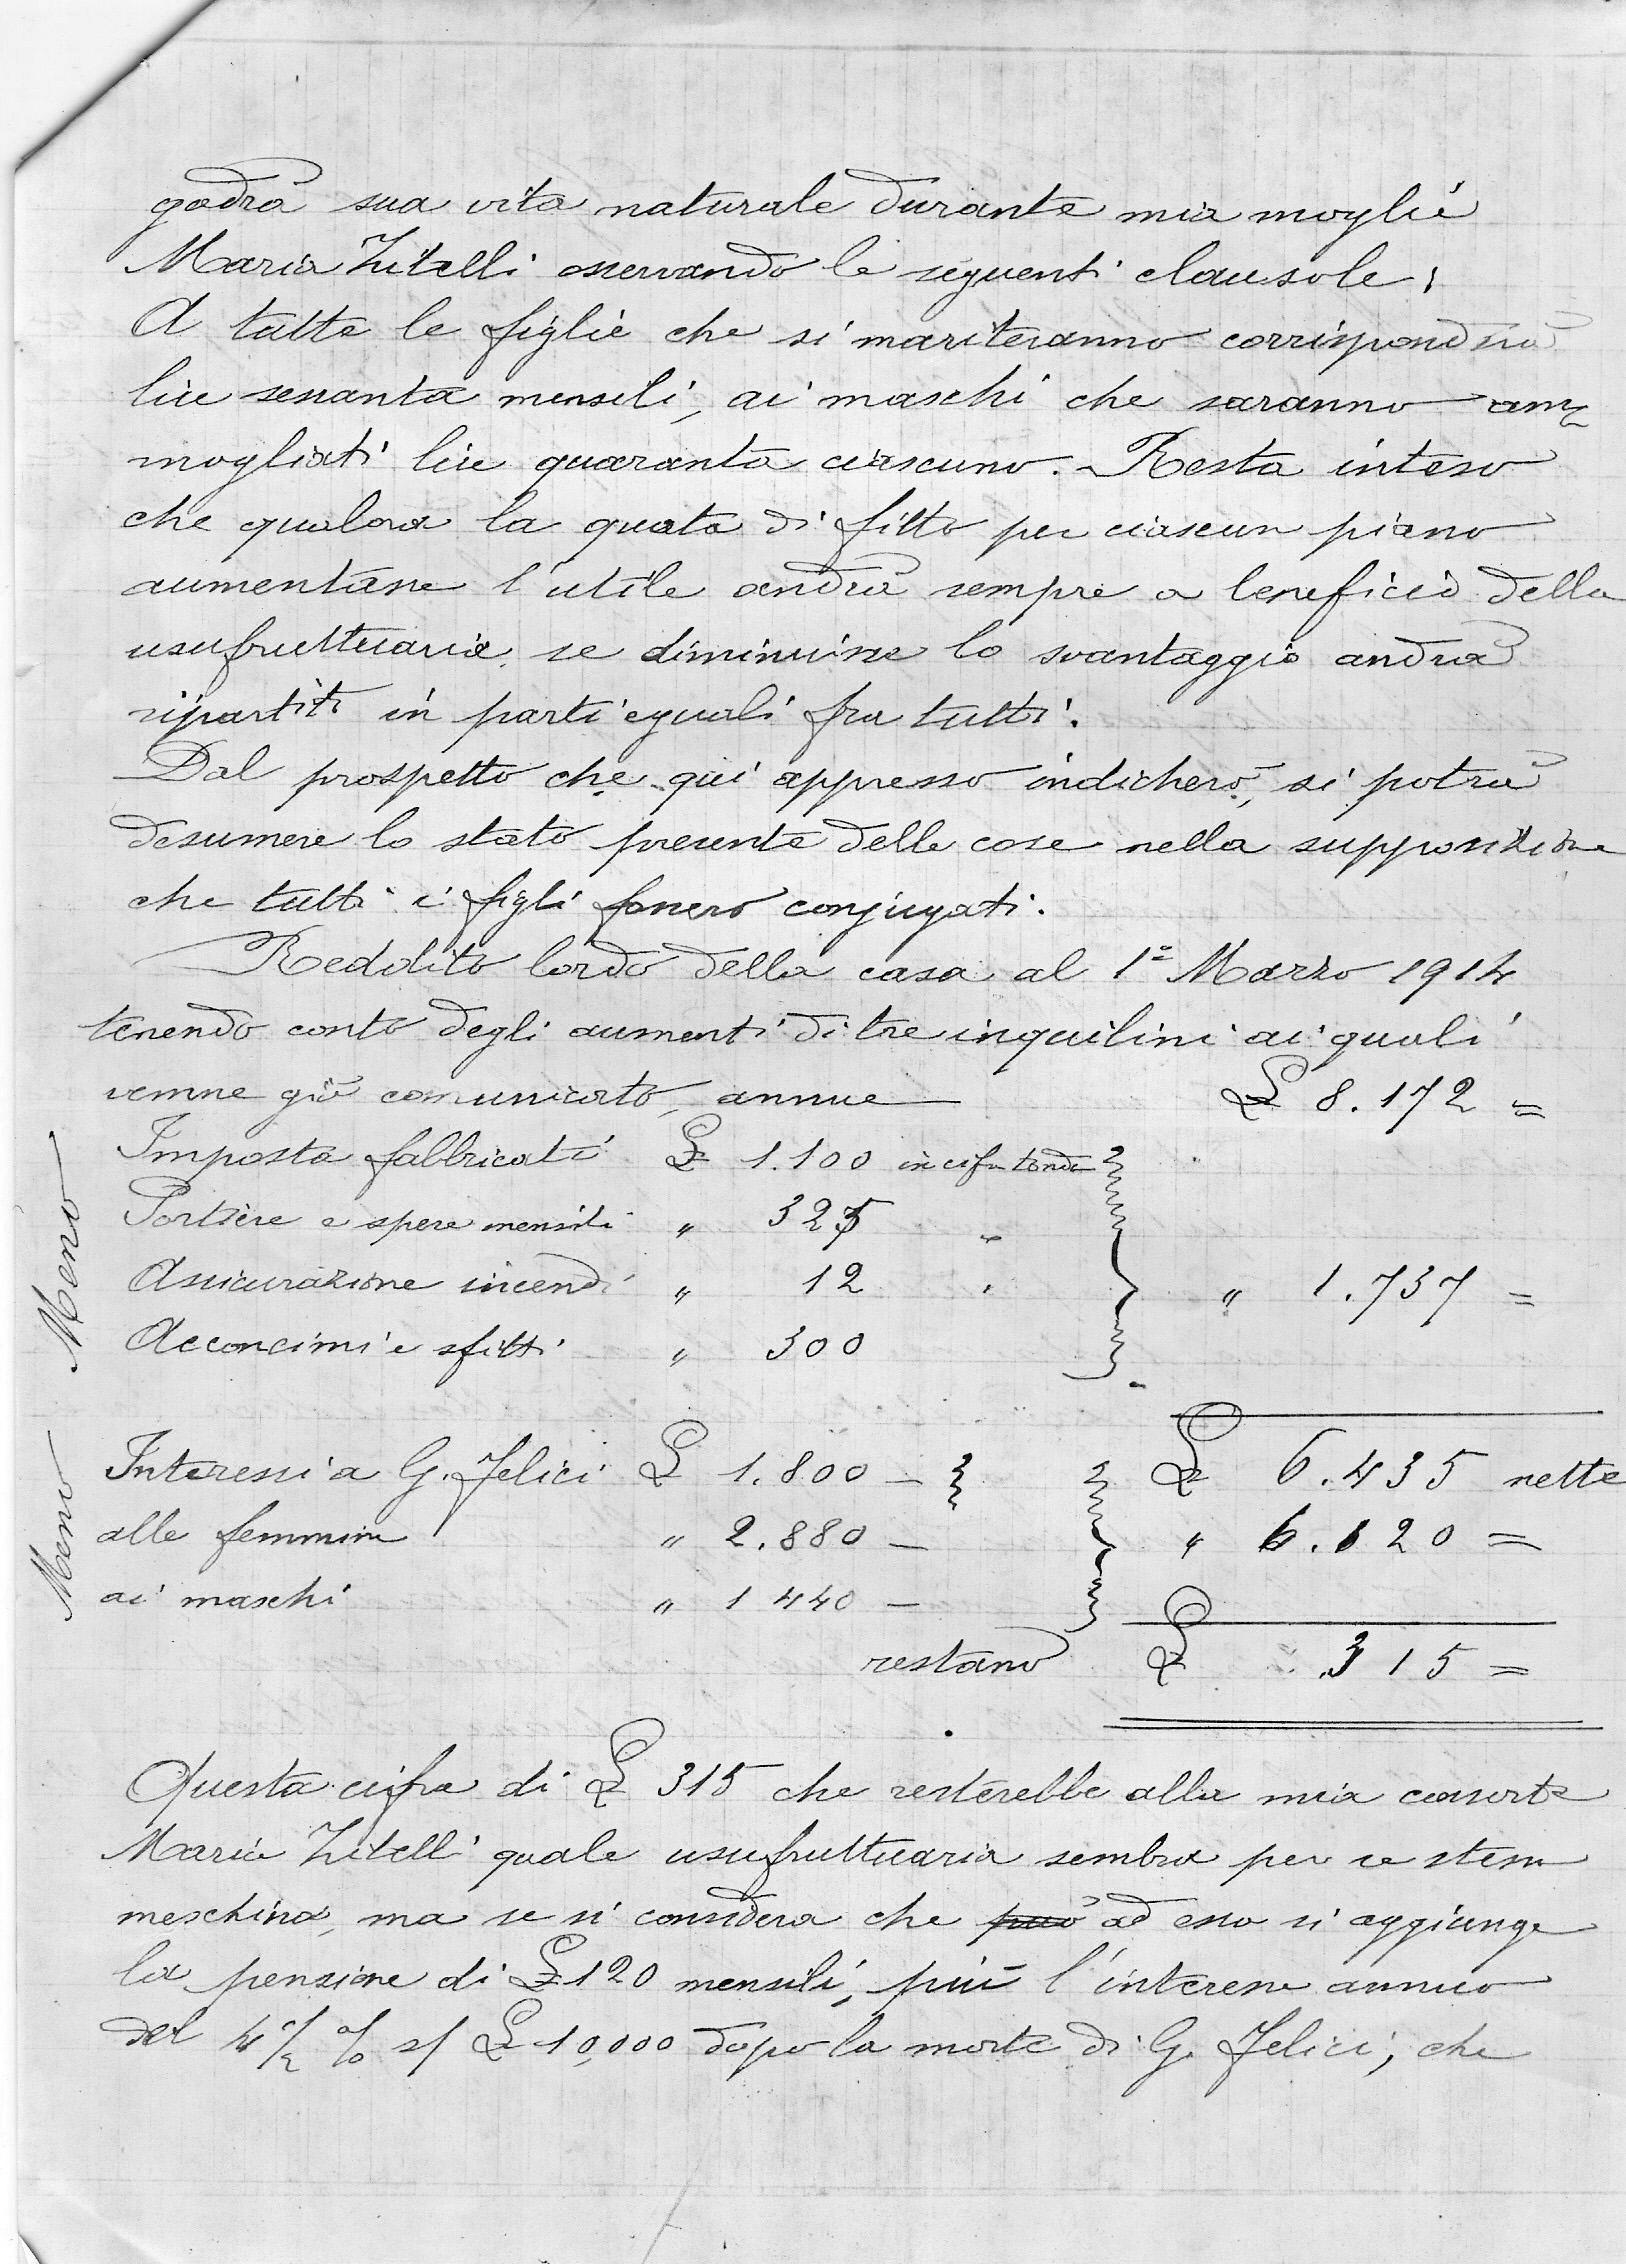 godrà sua vita naturale durante mia moglie
Maria Zitelli osservando le seguenti clausole;
A tutte le figlie che si mariteranno corrisponderà
lire sessanta mensili, ai maschi che saranno am=
mogliati lire quaranta ciascuno. Resta inteso
che qualora la quota di fitto per ciascun piano
aumentasse l'utile andrà sempre a beneficio della
usufruttuaria, se diminuisse lo svantaggio andrà
ripartiti in parti eguali fra tutti.
Dal prospetto che qui appresso indicherò, si potrà
desumere lo stato presente delle cose nella supposizione
che tutti i figli fossero conjugati.
Reddito lordo della casa al 1º Marzo 1914
tenendo conto degli aumenti di tre inquilini ai quali
venne già comunicato, annue £ 8.172 =
Meno
Imposta fabbricati £ 1.100 in cifra tonda
Portiere e spese mensili " 325 "
Assicurazione incendi " 12 " " 1.737 =
Acconcimi e sfitti " 300
Meno
Interessi a G. Felici £ 1.800 — £ 6.435 nette
alle femmine " 2.880 — " 6.120 =
ai maschi " 1440 —
restano £ 315 =
Questa cifra di £ 315 che resterebbe alla mia consorte
Maria Zitelli quale usufruttuaria sembra per se stessa
meschina, ma se si considera che può ad essa si aggiunge
la pensione di £ 120 mensili, più l'interesse annuo
del 4 ½ % s/ £ 10,000 dopo la morte di G. Felici, che